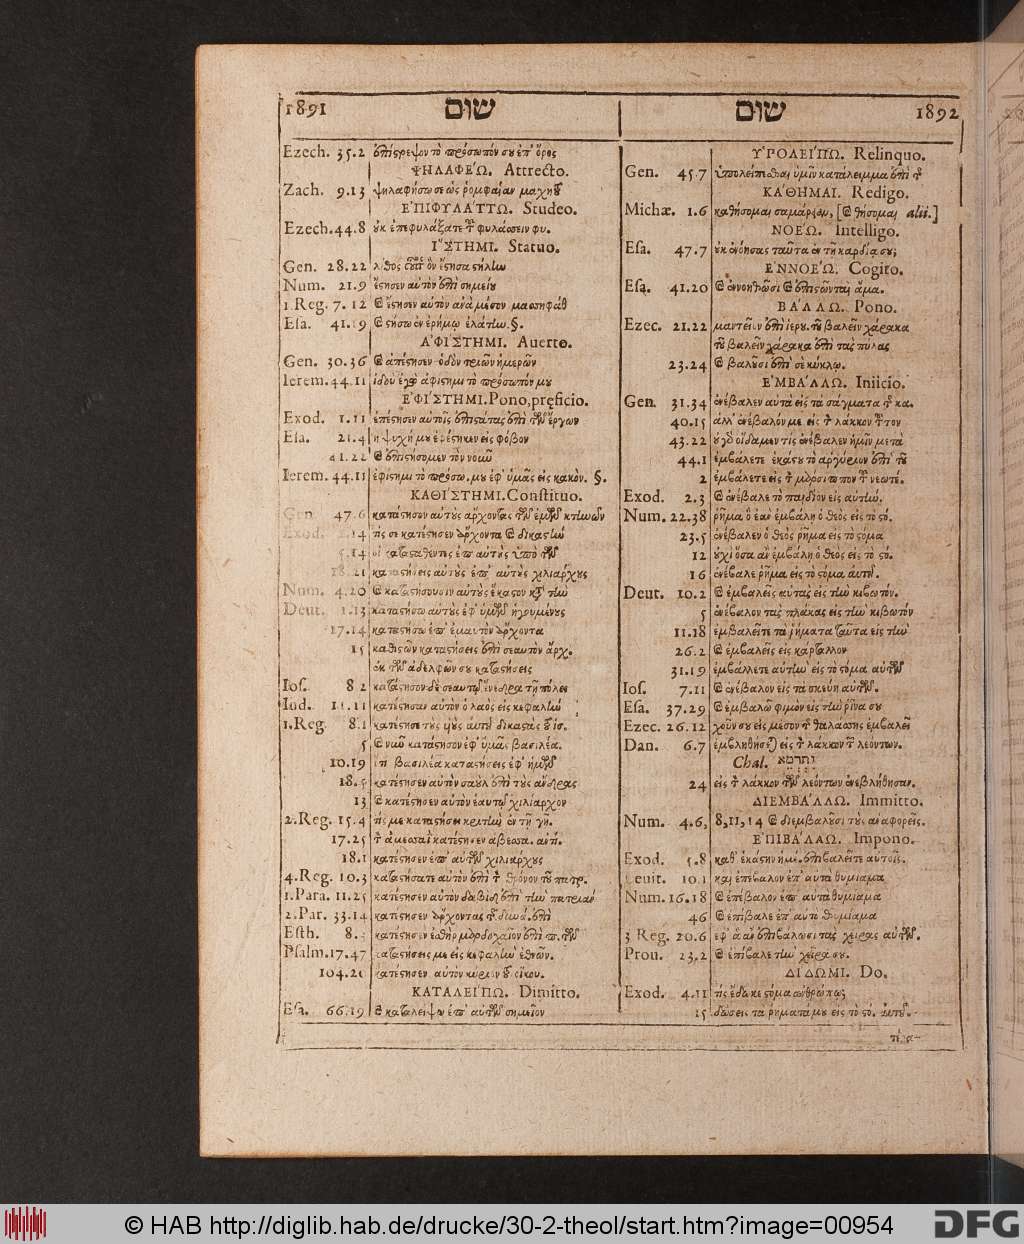 1891 שום
Ezech. 35.2 ἐπίστρεψον τὸ πρόσωπόν σου ἐπ' ὄρος
ΨΗΛΑΦΕΏ. Attrecto.
Zach. 9.13 ψηλαφήσω σε ὡς ῥομφαίαν μαχητοῦ
ἘΠΙΦΥΛΑΤΤΩ. Studeo.
Ezech. 44.8 οὐκ ἐπεφυλάξατε τοῦ φυλάσσειν φυ.
ἽΣΤΗΜΙ. Statuo.
Gen. 28.22 λίθος οὗτος ὃν ἔστησα στήλην
Num. 21.9 ἔστησεν αὐτὸν ἐπὶ σημείου
1.Reg. 7.12 καὶ ἔστησεν αὐτὸν ἀνὰ μέσον μασσηφὰθ
Esa. 41.19 καὶ στήσω ἐν ἐρήμῳ ἐλάτην. §.
ἈΦΙΣΤΗΜΙ. Auerto.
Gen. 30.36 καὶ ἀπέστησεν ὁδὸν τριῶν ἡμερῶν
Ierem. 44.11 ἰδοὺ ἐγὼ ἀφίστημι τὸ πρόσωπόν μου
ἘΦΙΣΤΗΜΙ. Pono, pręficio.
Exod. 1.11 ἐπέστησεν αὐτοῖς ἐπιστάτας ἐπὶ τῶν ἔργων
Esa. 21.4 ἡ ψυχή μου ἐφέστηκεν εἰς φόβον
41.22 καὶ ἐπιστήσομεν τὸν νοῦν
Ierem. 44.11 ἐφίστημι τὸ πρόσω. μου ἐφ' ὑμᾶς εἰς κακὸν. §.
ΚΑΘΙΣΤΗΜΙ. Constituo.
Gen. 47.6 κατάστησον αὐτοὺς ἄρχοντας τῶν ἐμῶν κτηνῶν
Exod. 2.14 τίς σε κατέστησεν ἄρχοντα καὶ δικαστὴν
5.14 οἱ κατασταθέντες ἐπ' αὐτοὺς ὑπὸ τῶν
18.21 καταστήσεις αὐτοὺς ἐπ' αὐτοὺς χιλιάρχους
Num. 4.20 καὶ καταστήσουσιν αὐτοὺς ἕκαστον κατὰ τὴν
Deut. 1.13 καταστήσω αὐτοὺς ἐφ' ὑμῶν ἡγουμένους
17.14 καταστήσω ἐπ' ἐμαυτὸν ἄρχοντα
15 καθιστῶν καταστήσεις ἐπὶ σεαυτὸν ἄρχ.
ἐκ τῶν ἀδελφῶν σου καταστήσεις
Ios. 8 2 κατάστησον δὲ σεαυτῷ ἔνεδρα τῇ πόλει
Iud. 11.11 κατέστησαν αὐτὸν ὁ λαὸς εἰς κεφαλὴν
1.Reg. 8.1 κατέστησε τοὺς υἱοὺς αὐτοῦ δικαστὰς τοῦ ἰσ.
5 καὶ νῦν κατάστησον ἐφ' ὑμᾶς βασιλέα.
10.19 βασιλέα καταστήσεις ἐφ' ἡμῶν
18.5 κατέστησεν αὐτὸν σαοὺλ ἐπὶ τοὺς ἄνδρας
13 καὶ κατέστησεν αὐτὸν ἑαυτῷ χιλίαρχον
2.Reg. 15.4 τίς με καταστήσει κριτὴν ἐν τῇ γῇ.
17.25 τὸν ἀμεσσαὶ κατέστησεν ἀβεσσα. ἀντ.
18.1 κατέστησεν ἐπ' αὐτῶν χιλιάρχους
4.Reg. 10.3 καταστήσατε αὐτὸν ἐπὶ τὸν θρόνον τοῦ πατρ.
1.Para. 11.25 κατέστησεν αὐτὸν δαβὶδ ἐπὶ τὴν πατριὰν
2.Par. 33.14 κατέστησεν ἄρχοντας τῆς δυνά. ἐπὶ
Esth. 8. κατέστησεν ἐσθὴρ μαρδοχαῖον ἐπὶ π. τῶν
Psalm. 17.47 καταστήσεις με εἰς κεφαλὴν ἐθνῶν.
104.21 κατέστησεν αὐτὸν κύριον τοῦ οἴκου.
ΚΑΤΑΛΕΙΠΩ. Dimitto.
Esa. 66.19 καὶ καταλείψω ἐπ' αὐτῶν σημεῖον
שום 1892
ὙΠΟΛΕΙΠΩ. Relinquo.
Gen. 45.7 ὑπολείπεσθαι ὑμῖν κατάλειμμα ἐπὶ τῆς
ΚΑΘΗΜΑΙ. Redigo.
Michæ. 1.6 καθήσομαι σαμάρειαν, [καὶ θήσομαι alii.]
ΝΟΕΏ. Intelligo.
Esa. 47.7 οὐκ ἐνόησας ταῦτα ἐν τῇ καρδίᾳ σου;
ἘΝΝΟΕΏ. Cogito.
Esa. 41.20 καὶ ἐννοηθῶσι καὶ ἐπιστῶνται ἅμα.
ΒΑΛΛΩ. Pono.
Ezec. 21.22 μαντεῖον ἐπὶ ἱερου. τοῦ βαλεῖν χάρακα
τοῦ βαλεῖν χάρακα ἐπὶ τὰς πύλας
23.24 καὶ βαλοῦσι ἐπὶ σὲ κύκλῳ.
ἘΜΒΑΛΛΩ. Iniicio.
Gen. 31.34 ἐνέβαλεν αὐτὰ εἰς τὰ σάγματα τῆς κα.
40.15 ἀλλ' ἐνέβαλόν με εἰς τὸν λάκκον τοῦτον
43.22 οὐκ οἴδαμεν τίς ἐνέβαλεν ἡμῖν μετὰ
44.1 ἐμβάλετε ἑκάστου τὸ ἀργύριον ἐπὶ τοῦ
2 ἐμβάλετε εἰς τὸν μάρσιππον τοῦ νεωτέ.
Exod. 2.3 καὶ ἐνέβαλε τὸ παιδίον εἰς αὐτήν.
Num. 22.38 ῥῆμα ὃ ἐὰν ἐμβάλῃ ὁ θεὸς εἰς τὸ στό.
23.5 ἐνέβαλεν ὁ θεὸς ῥῆμα εἰς τὸ στόμα
12 οὐχὶ ὅσα ἂν ἐμβάλῃ ὁ θεὸς εἰς τὸ στό.
16 ἐνέβαλε ῥῆμα εἰς τὸ στόμα αὐτοῦ.
Deut. 10.2 καὶ ἐμβαλεῖς αὐτὰς εἰς τὴν κιβωτόν.
5 ἐνέβαλον τὰς πλάκας εἰς τὴν κιβωτόν
11.18 ἐμβαλεῖτε τὰ ῥήματα ταῦτα εἰς τὴν
26.2 καὶ ἐμβαλεῖς εἰς κάρταλλον
31.19 ἐμβάλλετε αὐτὴν εἰς τὸ στόμα αὐτῶν
Ios. 7.11 καὶ ἐνέβαλον εἰς τὰ σκεύη αὐτῶν.
Esa. 37.29 καὶ ἐμβαλῶ φιμὸν εἰς τὴν ῥῖνα σου
Ezec. 26.12 χοῦν σου εἰς μέσον τῆς θαλάσσης ἐμβαλεῖ
Dan. 6.7 ἐμβληθήσεται εἰς τὸν λάκκον τῶν λεόντων.
Chal. ותרמא
24 εἰς τὸν λάκκον τῶν λεόντων ἐνεβλήθησαν.
ΔΙΕΜΒΑΛΛΩ. Immitto.
Num. 4.6, 8, 11, 14 καὶ διεμβαλοῦσι τοὺς ἀναφορεῖς.
ἘΠΙΒΑΛΛΩ. Impono.
Exod. 5.8 καθ' ἑκάστην ἡμέ. ἐπιβαλεῖτε αὐτοῖς.
Leuit. 10.1 καὶ ἐπέβαλον ἐπ' αὐτὰ θυμίαμα
Num. 16.18 καὶ ἐπέβαλον ἐπ' αὐτὰ θυμίαμα
46 καὶ ἐπίβαλε ἐπ' αὐτὸ θυμίαμα
3 Reg. 20.6 ἐφ' ἃ ἂν ἐπιβάλωσι τὰς χεῖρας αὐτῶν.
Prou. 23.2 καὶ ἐπίβαλε τὴν χεῖρά σου.
ΔΙΔΩΜΙ. Do.
Exod. 4.11 τίς ἔδωκε στόμα ἀνθρώπῳ;
15 δώσεις τὰ ῥήματά μου εἰς τὸ στό. αὐτοῦ.
© HAB http://diglib.hab.de/drucke/30-2-theol/start.htm?image=00954
DFG